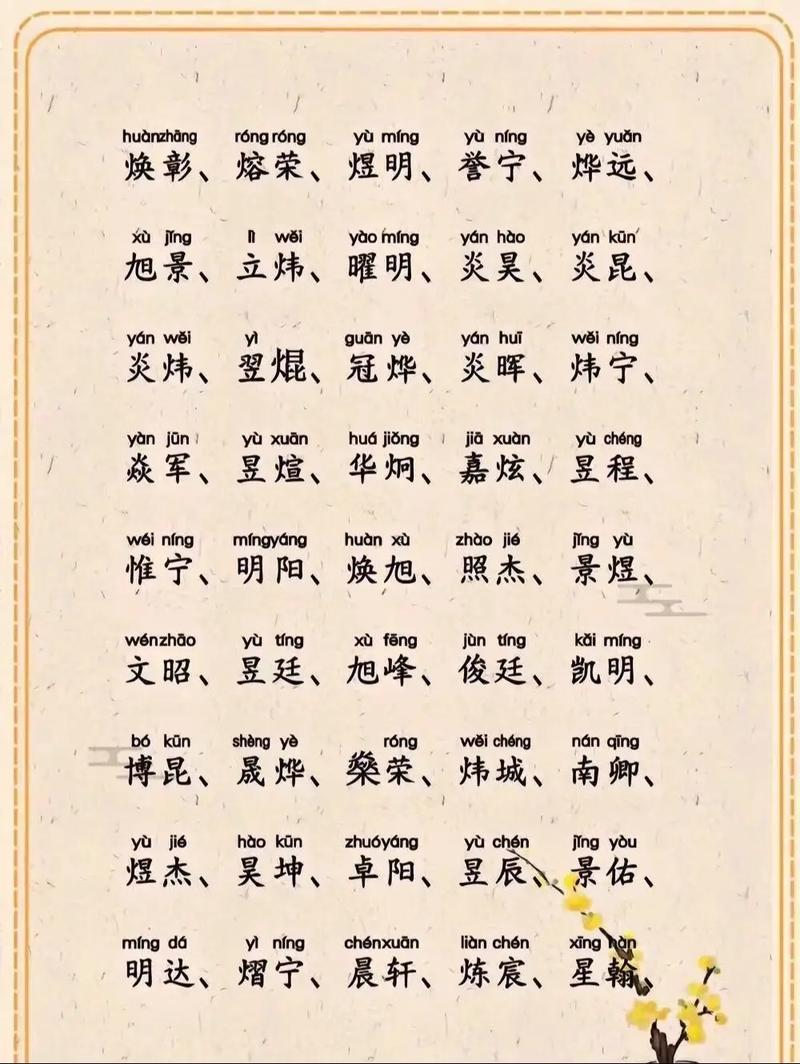 huànzhāng róng róng yù míng yù níng yè yuǎn
焕彰、熔荣、煜明、誉宁、烨远、
xù jǐng lì wěi yào míng yán hào yán kūn
旭景、立炜、曜明、炎昊、炎昆、
yán wěi yì guān yè yán huī wěi níng
炎炜、翌焜、冠烨、炎晖、炜宁、
yàn jūn yù xuān huá jiǒng jiā xuàn yù chéng
焱军、昱煊、华炯、嘉炫、昱程、
wéi níng míngyáng huàn xù zhào jié jǐng yù
惟宁、明阳、焕旭、照杰、景煜、
wénzhāo yù tíng xù fēng jùn tíng kǎi míng
文昭、昱廷、旭峰、俊廷、凯明、
bó kūn shèng yè róng wěi chéng nán qīng
博昆、晟烨、燊荣、炜城、南卿、
yù jié hào kūn zhuóyáng yù chén jǐng yòu
煜杰、昊坤、卓阳、昱辰、景佑、
míng dá yì níng chénxuān liàn chén xīng hàn
明达、熠宁、晨轩、炼宸、星翰、